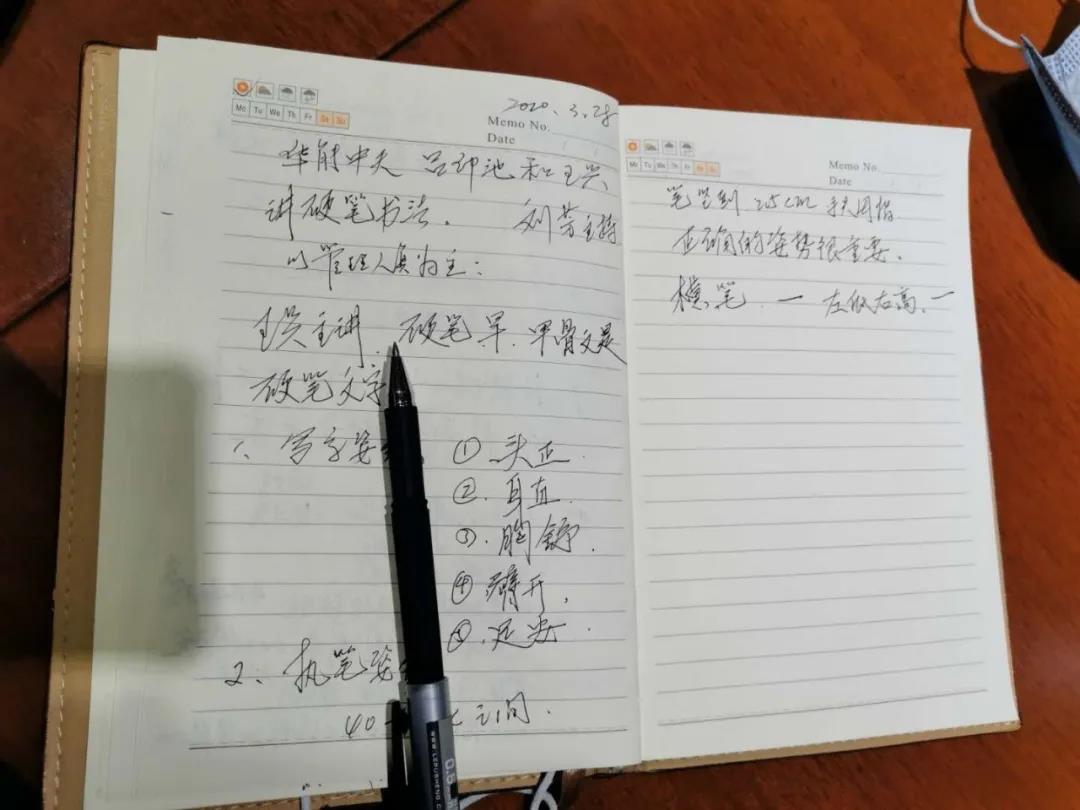 2020.3.28
Mo Tu We Th Fr Sa Su
Memo No.
Date
华能中天 吕印池和王兴
讲硬笔书法. 刘芳主持
以管理人员为主:
王兴主讲. 硬笔早. 甲骨文是
硬笔文字
1、写字姿
① 头正.
②. 身直.
③. 胸舒.
④ 臂开,
⑤. 足安.
2、执笔姿
40 之间.
WWW.LEPUSHENG.C
0.5
Mo Tu We Th Fr Sa Su
Memo No.
Date
笔尖到 2.5cm
正确的姿势很重要。
横笔. 一 左低右高. 一